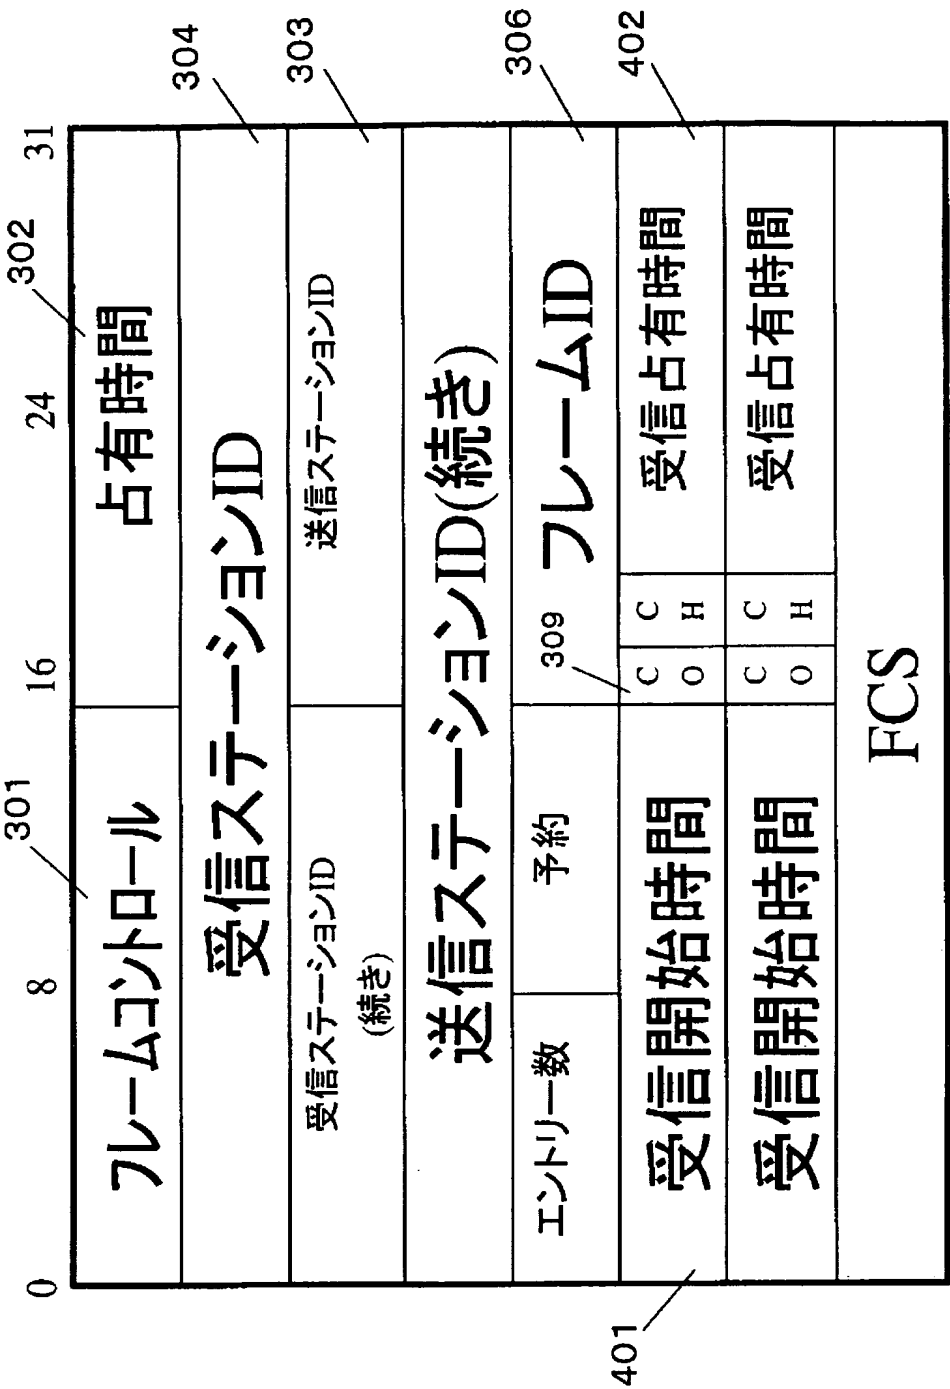 0 8 16 24 31
301
302
フレームコントロール 占有時間
304
受信ステーションID
303
受信ステーションID 送信ステーションID
(続き)
送信ステーションID(続き)
306
エントリー数 予約 フレームID
309
401
402
受信開始時間 CO CH 受信占有時間
受信開始時間 CO CH 受信占有時間
FCS